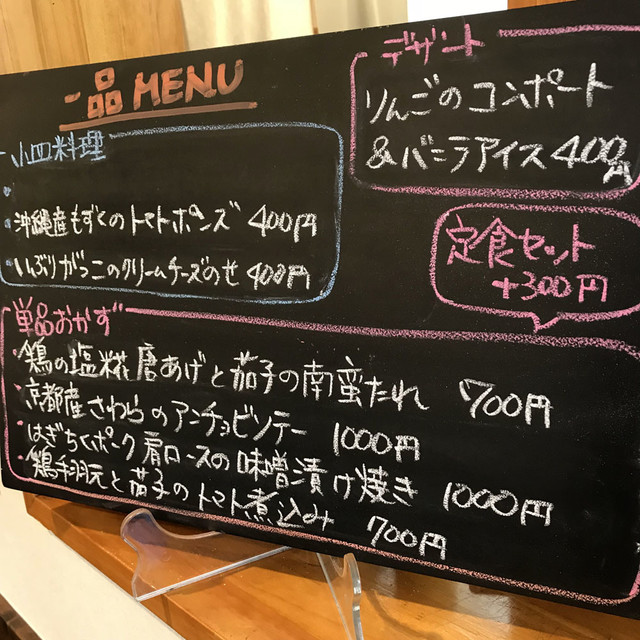 一品MENU
小皿料理
・
・沖縄産もずくのトマトポンズ 400円
・いぶりがっこのクリームチーズのせ 400円
デザート
りんごのコンポート
&バニラアイス400円
定食セット
+300円
単品おかず
・鶏の塩糀唐あげと茄子の南蛮たれ 700円
・京都産さわらのアンチョビソテー 1000円
・はぎちくポーク肩ロースの味噌漬け焼き 1000円
・鶏手羽元と茄子のトマト煮込み 700円